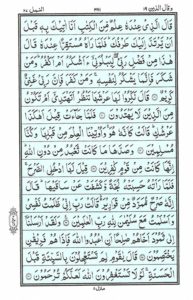 وقال الذين ١٩ النمل ٢٧
قَالَ الَّذِي عِنْدَهٗ عِلْمٌ مِّنَ الْكِتٰبِ اَنَا اٰتِيْكَ بِهٖ قَبْلَ
اَنْ يَّرْتَدَّ اِلَيْكَ طَرْفُكَ ؕ فَلَمَّا رَاٰهُ مُسْتَقِرًّا عِنْدَهٗ قَالَ
هٰذَا مِنْ فَضْلِ رَبِّيْ ۖ لِيَبْلُوَنِيْٓ ءَاَشْكُرُ اَمْ اَكْفُرُ ؕ وَمَنْ
شَكَرَ فَاِنَّمَا يَشْكُرُ لِنَفْسِهٖ ۚ وَمَنْ كَفَرَ فَاِنَّ رَبِّيْ غَنِيٌّ
كَرِيْمٌ ۝ قَالَ نَكِّرُوْا لَهَا عَرْشَهَا نَنْظُرْ اَتَهْتَدِيْٓ اَمْ تَكُوْنُ
مِنَ الَّذِيْنَ لَا يَهْتَدُوْنَ ۝ فَلَمَّا جَآءَتْ قِيْلَ اَهٰكَذَا
عَرْشُكِ ؕ قَالَتْ كَاَنَّهٗ هُوَ ۚ وَاُوْتِيْنَا الْعِلْمَ مِنْ قَبْلِهَا وَكُنَّا
مُسْلِمِيْنَ ۝ وَصَدَّهَا مَا كَانَتْ تَّعْبُدُ مِنْ دُوْنِ اللّٰهِ ؕ
اِنَّهَا كَانَتْ مِنْ قَوْمٍ كٰفِرِيْنَ ۝ قِيْلَ لَهَا ادْخُلِي الصَّرْحَ ۚ
فَلَمَّا رَاَتْهُ حَسِبَتْهُ لُجَّةً وَّكَشَفَتْ عَنْ سَاقَيْهَا ؕ قَالَ
اِنَّهٗ صَرْحٌ مُّمَرَّدٌ مِّنْ قَوَارِيْرَ ؕ قَالَتْ رَبِّ اِنِّيْ ظَلَمْتُ نَفْسِيْ
وَاَسْلَمْتُ مَعَ سُلَيْمٰنَ لِلّٰهِ رَبِّ الْعٰلَمِيْنَ ۝ وَلَقَدْ اَرْسَلْنَآ
اِلٰى ثَمُوْدَ اَخَاهُمْ صٰلِحًا اَنِ اعْبُدُوا اللّٰهَ فَاِذَا هُمْ فَرِيْقٰنِ
يَخْتَصِمُوْنَ ۝ قَالَ يٰقَوْمِ لِمَ تَسْتَعْجِلُوْنَ بِالسَّيِّئَةِ قَبْلَ
الْحَسَنَةِ ۚ لَوْلَا تَسْتَغْفِرُوْنَ اللّٰهَ لَعَلَّكُمْ تُرْحَمُوْنَ ۝
منزل ٥